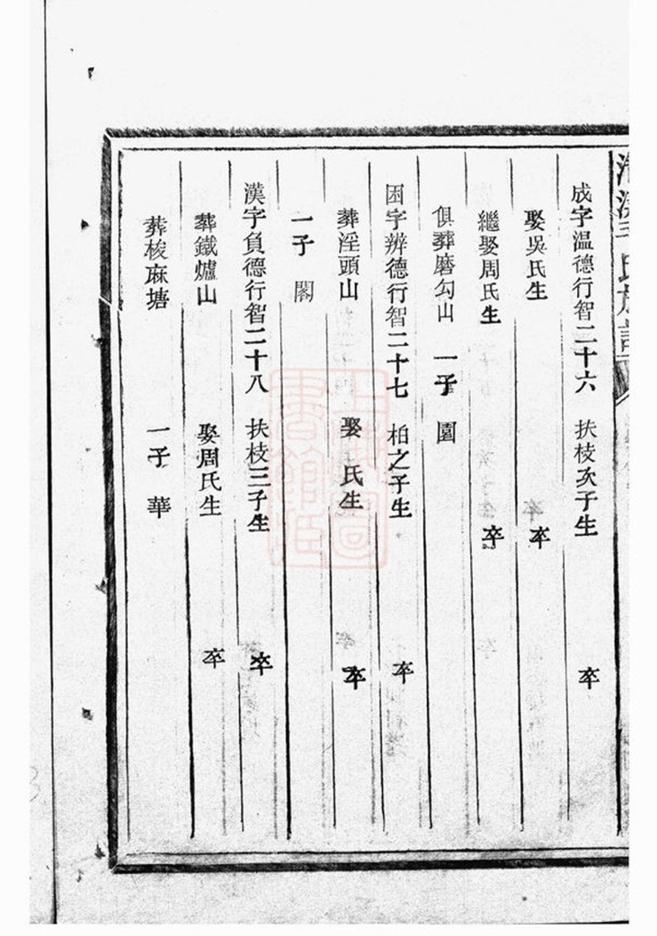 氏族譜
成字温德行智二十六　扶枝次子生　卒
娶吳氏生　卒
繼娶周氏生　卒
俱葬磨勾山　一子　圓
困字辨德行智二十七　柏之子生　卒
葬淫頭山　娶　氏生　卒
一子　閣
漢字負德行智二十八　扶枝三子生　卒
葬鐵爐山　娶周氏生　卒
葬梭麻塘　一子　華